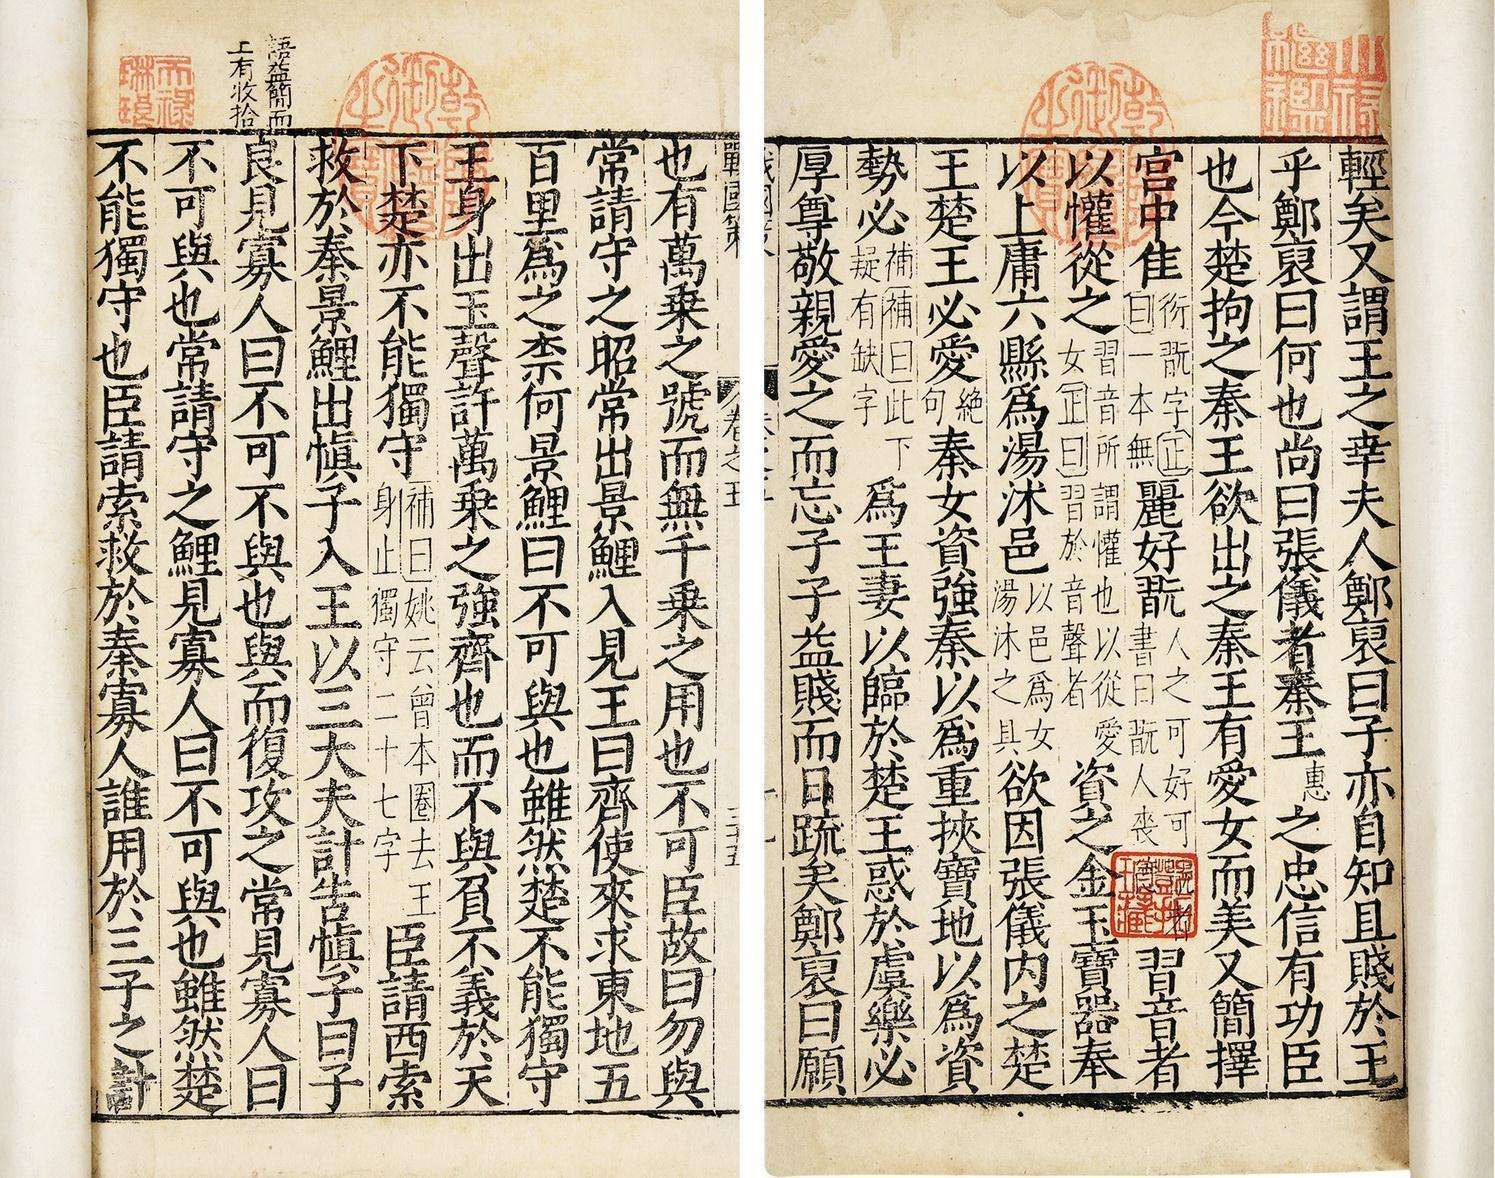 輕矣又謂王之幸夫人鄭裒曰子亦自知且賤於王
乎鄭裒曰何也尚曰張儀者秦王惠之忠信有功臣
也今楚拘之秦王欲出之秦王有愛女而美又簡擇
宫中隹衍翫字正曰一本無麗好翫人之可好可翫者書曰翫人喪習音者
以懽從之習音所謂懽也以從愛女正曰習於音聲者資之金玉寶器奉
以上庸六縣爲湯沭邑以邑爲女湯沐之具欲因張儀内之楚
王楚王必愛絶句秦女資強秦以爲重挾寶地以爲資
勢必補補曰此下疑有缺字爲王妻以臨於楚王惑於虞樂必
厚尊敬親愛之而忘子子益賤而日疏矣鄭裒曰願
乾隆御覽之寶
戰國策 卷之五 三十五
也有萬乗之號而無千乗之用也不可臣故曰勿與
常請守之昭常出景鯉入見王曰齊使來求東地五
百里爲之柰何景鯉曰不可與也雖然楚不能獨守
王身出玉聲許萬乗之強齊也而不與負不義於天
下楚亦不能獨守補曰姚云曾本圈去王身止獨守二十七字臣請西索
救於秦景鯉出慎子入王以三大夫計告慎子曰子
良見寡人曰不可不與也與而復攻之常見寡人曰
不可與也常請守之鯉見寡人曰不可與也雖然楚
不能獨守也臣請索救於秦寡人誰用於三子之計
語益簡而
上有收拾
乾隆御覽之寶
天禄琳琅